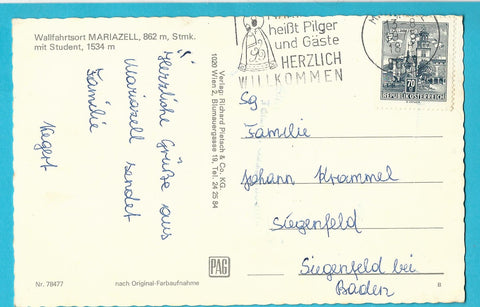 Wallfahrtsort MARIAZELL, 862 m, Stmk.
mit Student, 1534 m
Herzliche Grüße aus
Mariazell sendet
Familie
Kegert
Verlag: Richard Pietsch & Co. KG.
1020 Wien 2, Blumauergasse 19, Tel. 24 25 84
PAG
Nr. 78477
nach Original-Farbaufnahme
8
heißt Pilger
und Gäste
HERZLICH
WILLKOMMEN
70
REPUBLIK ÖSTERREICH
Sg
Familie
Johann Krammel
Siegenfeld
Siegenfeld bei
Baden